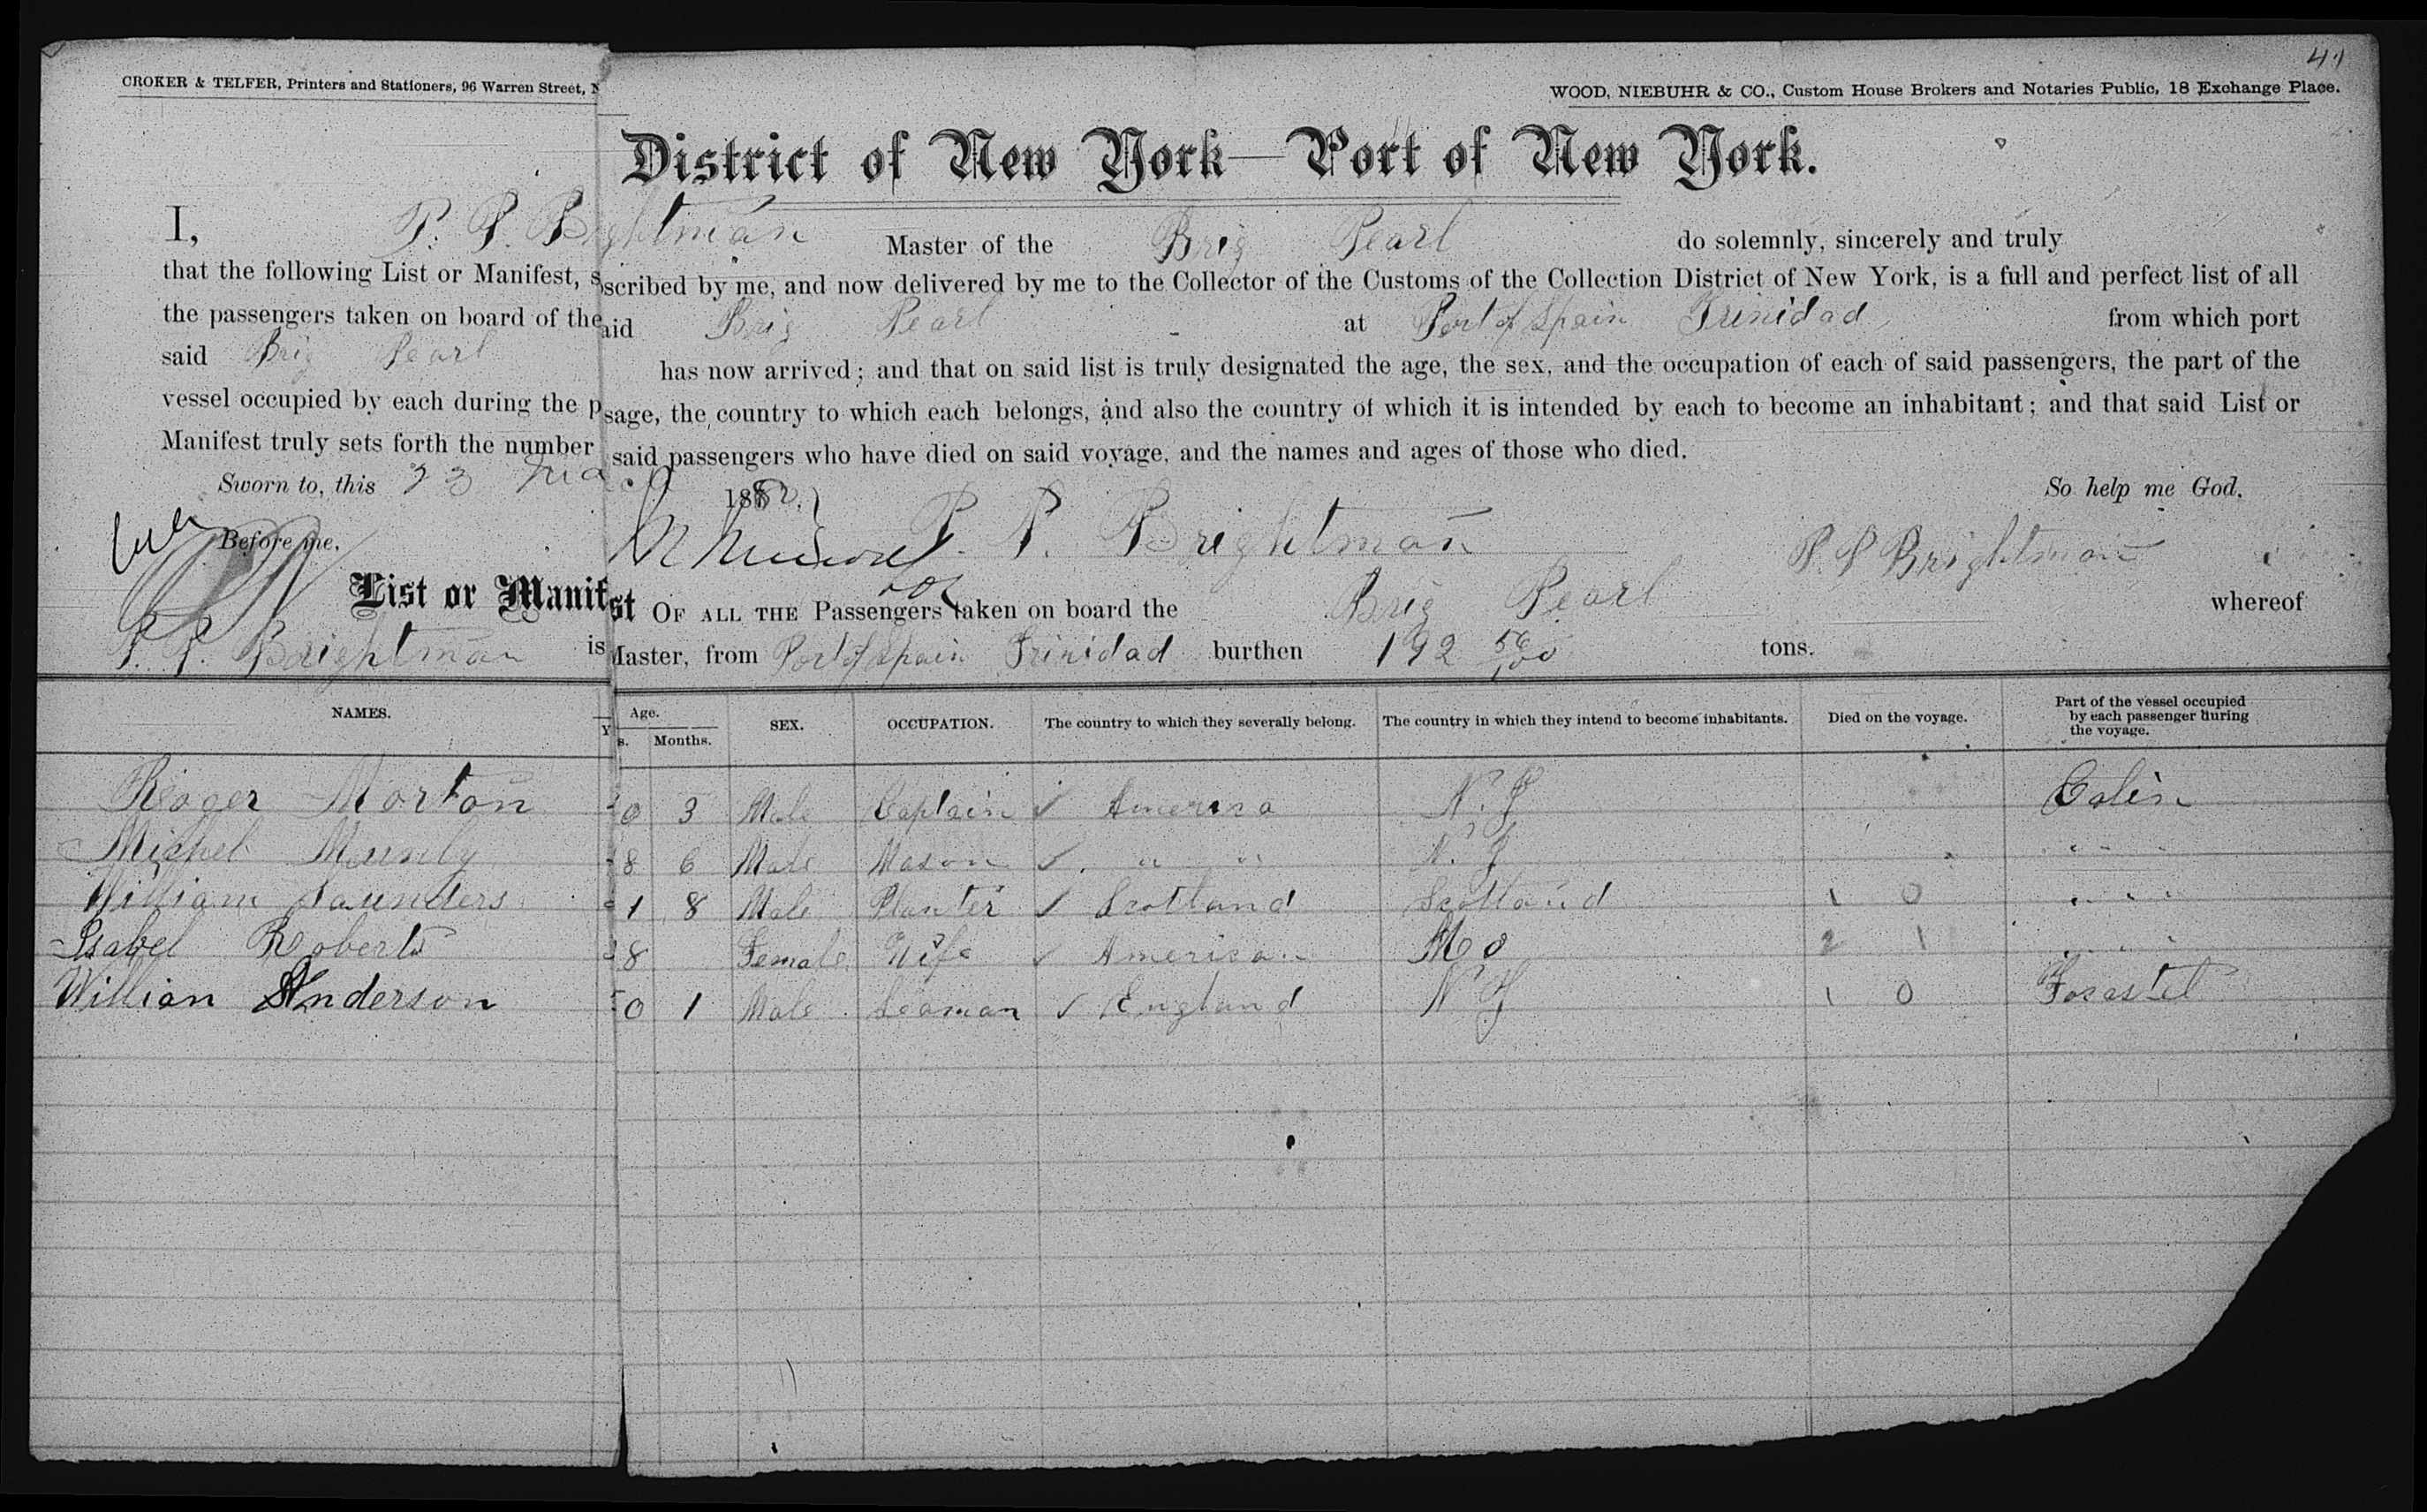 41
CROKER & TELFER, Printers and Stationers, 96 Warren Street, N
WOOD, NIEBUHR & CO., Custom House Brokers and Notaries Public, 18 Exchange Place.
District of New York—Port of New York.
I, P. P. Brightman Master of the Brig Pearl do solemnly, sincerely and truly
that the following List or Manifest, s scribed by me, and now delivered by me to the Collector of the Customs of the Collection District of New York, is a full and perfect list of all
the passengers taken on board of the aid Brig Pearl at Port of Spain Trinidad from which port
said Brig Pearl has now arrived; and that on said list is truly designated the age, the sex, and the occupation of each of said passengers, the part of the
vessel occupied by each during the p sage, the country to which each belongs, and also the country of which it is intended by each to become an inhabitant; and that said List or
Manifest truly sets forth the number said passengers who have died on said voyage, and the names and ages of those who died.
Sworn to, this 23 188 So help me God.
Before me, P. P. Brightman P. P Brightman
List or Manif st OF ALL THE Passengers taken on board the Brig Pearl whereof
P. P. Brightman is Master, from Port of Spain Trinidad burthen 192 56/100 tons.
NAMES. Y s. Age. Months. SEX. OCCUPATION. The country to which they severally belong. The country in which they intend to become inhabitants. Died on the voyage. Part of the vessel occupied by each passenger during the voyage.
Morton 0 3 Male Captain ✓ America N. Y
Mishel 8 6 Male Mason ✓ " " N. Y " " "
William Saunders 1 8 Male Planter ✓ Scotland Scotland 1 0 " " "
Isabel Roberts 8 Female Wife ✓ America Mo 2 1 " " "
Willian Anderson 0 1 Male Seaman ✓ England N Y 1 0 Forastel